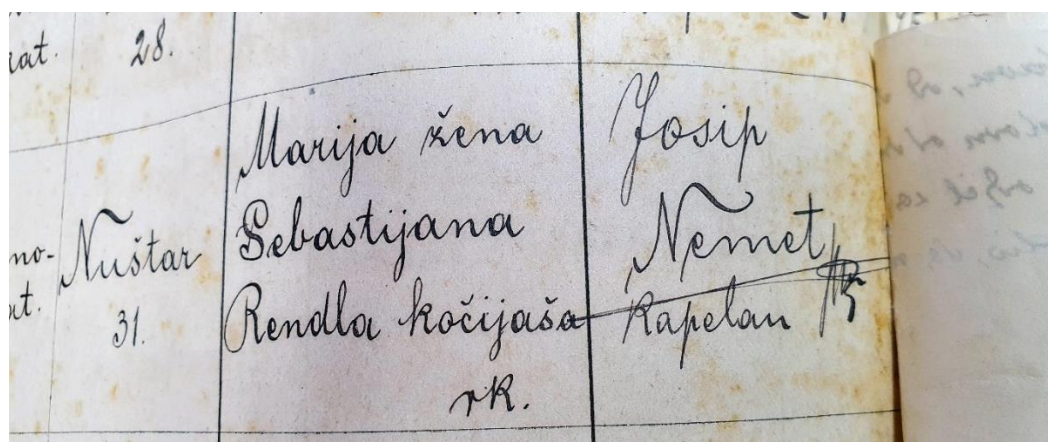 rat.
28.
no-
at.
Nuštar
31.
Marija žena
Sebastijana
Rendla kočijaša
rk.
Josip
Nemet
kapelan